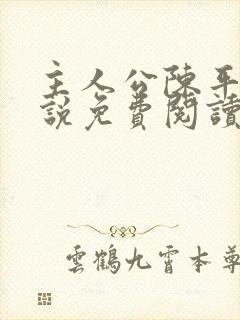 主人公陳平
說免費閱讀
雲鶴九霄本尊